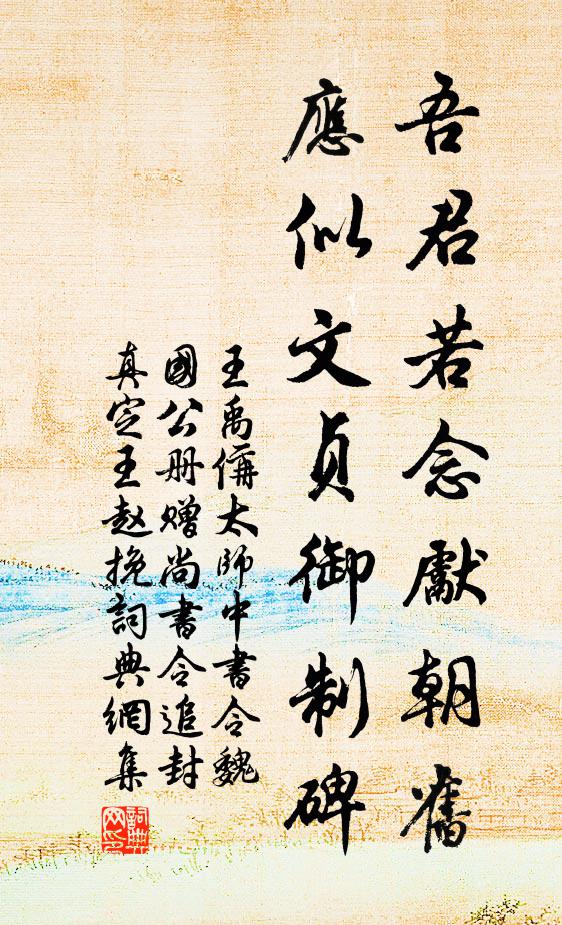 吾君若念獻朝舊
應似文貞御制碑
王禹偁太師中書令魏
國公册贈尚書令追封
真定王趙挽詞典網集
詞典网印